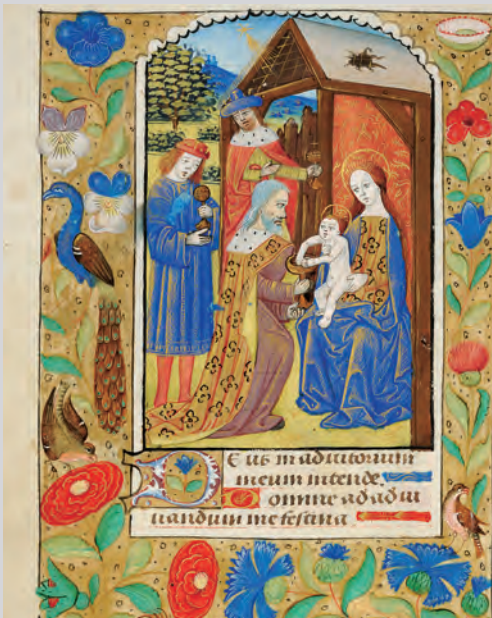 DEus in adiutorium
meum intende.
Domine ad adiu
uandum me festina